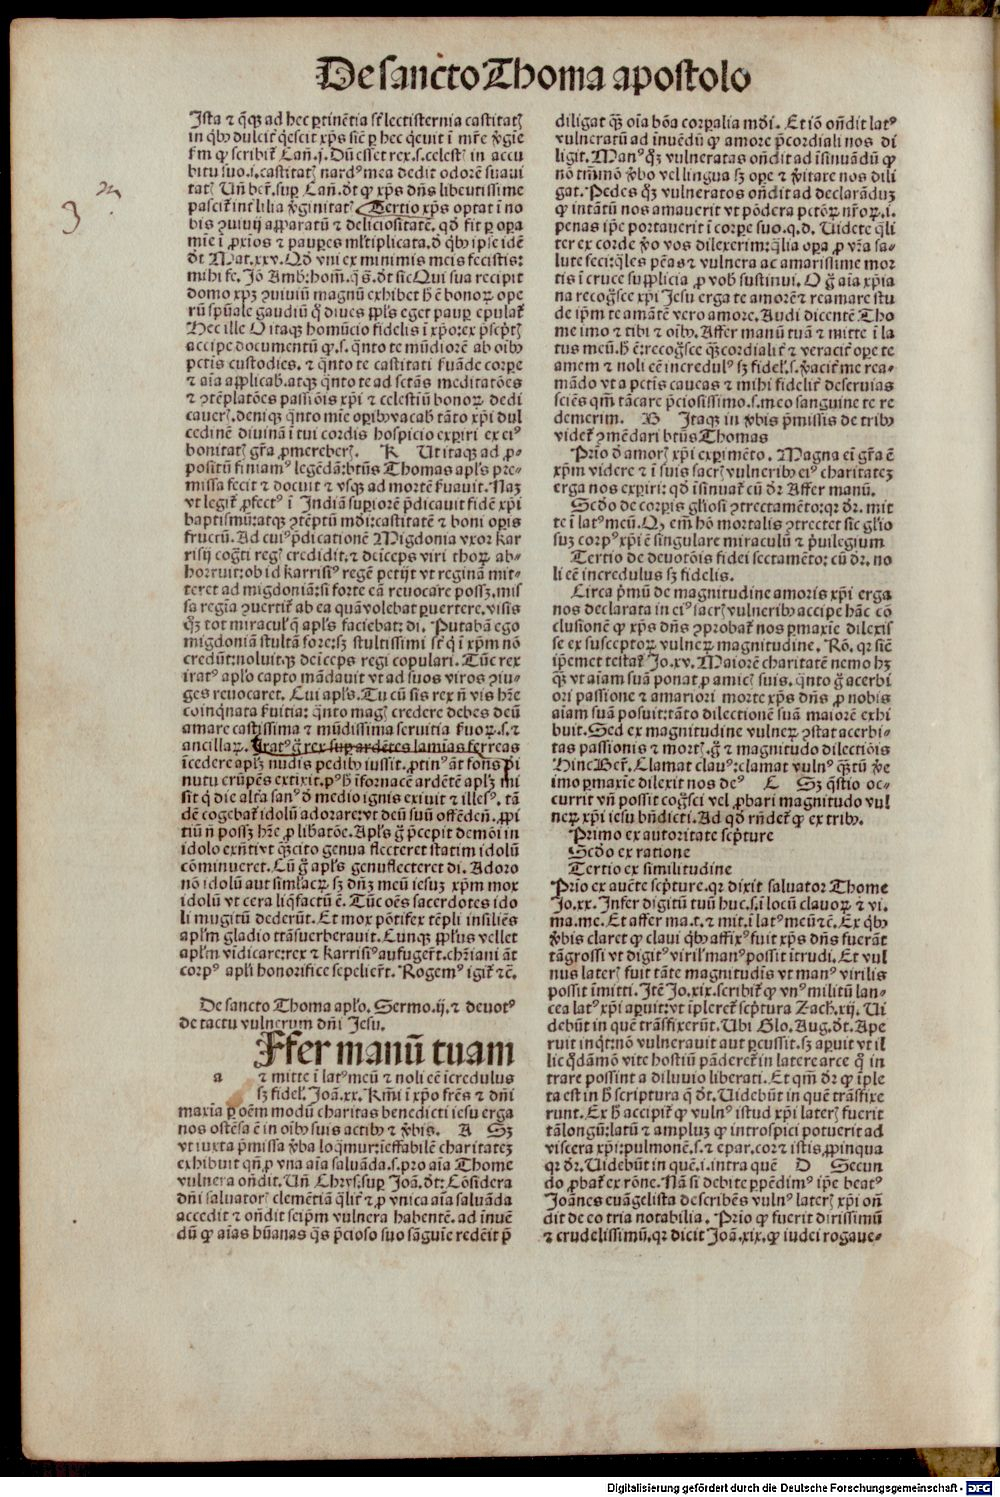 De sancto Thoma apostolo
Ista ⁊ q̄cūqꝫ ad hec ꝑtinētia sūt lectisternia castitatꝭ
in qͥbꝰ dulciť qͥescit xp̄s sicut ꝑ hec qͥeuit ī mr̄e ꝟgīe
Dū esset rex .s. celestꝭ in accu
bitu suo .s. castitatꝭ nardꝰ mea dedit odorē suaui
tatꝭ Uñ ber̄. sup Cañ. d̄t ꝙ xp̄s dn̄s libentissime
pascit̄ int̄ lilia ꝟginitatꝭ Tertio xp̄s optat ī no
bis ꝯuiuij apparatū ⁊ deliciositatē. qd̓ fit ꝑ oꝑa
mīe ī ꝓxīos ⁊ pauꝑes ml̓tiplicata. d̓ qͥbꝰ ip̄se idē
d̄t Mat. xxv. Qd̓ vni ex minimis meis fecistis:
mihi fe.
domo xp̄ꝫ ꝯuiuiū magnū exhibet
Hec ille O itaqꝫ homūcio fidelis ī xp̄o: ex p̄scpͥtꝭ
accipe documentū ꝙ .s. qͣnto te mūdiorē ab oībꝰ
pctīs custodies. ⁊ qͣnto te castitati ẜuāde corꝑe
⁊ aīa applicabꝭ. atqꝫ qͣnto te ad sct̄as meditatōes
⁊ ꝯtēplatōes passiōis xp̄i ⁊ celestiū bonoꝝ dedi
caueꝭ. deniqꝫ qͣnto mīe oꝑibꝰ vacabꝭ tāto xp̄i dul
cedinē diuinā ī tui cordis hospicio exꝑiri ex eiꝰ
bonitatꝭ gr̄a ꝓmereberꝭ. K Ut itaqꝫ ad ꝓ-
positū finiamꝰ legēdā: btūs Thomas apl̓s pre-
missa fecit ⁊ docuit ⁊ vsqꝫ ad mortē ẜuauit. Naꝫ
vt legit̄ ꝓfectꝰ ī Indiā suꝑiorē p̄dicauit fidē xp̄i
baptismū: atqꝫ ꝯtēptū mūdi: castitatē ⁊ boni oꝑis
fructū. Ad cuiꝰ p̄dicationē Migdonia vxor kar
risij cogͣti regꝭ credidit. ⁊ deīceps viri thoꝝ ab-
horruit: ob id karrisiꝰ regē petijt vt reginā mit-
teret ad migdoniā: si forte eā reuocare possꝫ. mis
sa regīa ꝯuertit̄ ab ea quā volebat ꝑuertere. visis
qͣꝫ tot miraculꝭ q̄ apl̓s faciebat: di. Putabā ego
migdoniā stultā fore: sꝫ stultissimi sūt qͥ ī xp̄m nō
credūt: noluitqꝫ deīceps regi copulari. Tūc rex
iratꝰ apl̓o capto mādauit vt ad suos viros ꝯiu-
ges reuocaret. Cui apl̓s. Tu cū sis rex n̄ vis hr̄e
coinqͥnata ẜuitia: qͣnto magꝭ credere debes deū
amare castissima ⁊ mūdissima seruitia ẜuoꝝ. s. ⁊
ancillaꝝ. Iratꝰ gͦ rex suꝑ ardētes lamias ferreas
īcedere apl̓ꝫ nudis pedibꝰ iussit. ꝓtinꝰ āt fons dei
nutu erūpēs extīxit. pꝰ h̓ īfornacē ardētē apl̓ꝫ mi
sit qͥ die alťa sanꝰ d̓ medio ignis exiuit ⁊ illesꝰ. tā
dē cogebat̄ idolū adorare: vt deū suū offēdeň. ꝓpi
tiū n̄ possꝫ hr̄e ꝓ libatōe. Apl̓s gͦ p̄cepit demōi in
idolo exn̄ti vt qͣꝫcito genua flecteret statim idolū
cōminueret. Cū gͦ apl̓s genuflecteret di. Adoro
nō idolū aut siml̓acꝝ. sꝫ dn̄ꝫ meū iesuꝫ xp̄m mox
idolū vt cera liqͥfactū ē. Tūc oēs sacerdotes ido
li mugitū dederūt. Et mox pōtifex tēpli insiliēs
apl̓m gladio trāsuerberauit. Cunqꝫ ppl̓us vellet
apl̓m vīdicare: rex ⁊ karrisiꝰ aufuger̄t. chr̄iani āt
corpꝰ apl̓i honorifice sepelier̄t. Rogemꝰ igit̄ ⁊c̄.
De sancto Thoma apl̓o. Sermo .ij. ⁊ deuotꝰ
de tactu vulnerum dn̄i Jesu.
Ffer manū tuam
a ⁊ mitte ī latꝰ meū ⁊ noli eē īcredulus
sꝫ fidelꝭ. Joā. xx. Km̄i ī xp̄o fr̄es ⁊ dn̄i
maxīa ꝑ oēm modū charitas benedicti iesu erga
nos ostēsa ē in oībꝰ suis actibꝰ ⁊ ꝟbis. A Sꝫ
vt iuxta p̄missa ꝟba loqͣmur: īeffabilē charitateꝫ
exhibuit qn̄ ꝓ vna aīa saluāda. s. pro aīa Thome
vulnera on̄dit. Uñ Chrys. suꝑ Joā. d̄t: Cōsidera
dn̄i saluatorꝭ clemētiā qͣlit̄ ⁊ ꝓ vnica aīa saluāda
accedit ⁊ on̄dit seip̄m vulnera habentē. ad īnuē
dū ꝙ aīas hūanas qͣs p̄cioso suo sāguīe redēit p̄
diligat qͣꝫ oīa bōa corꝑalia mūdi. Et iō on̄dit latꝰ
vulneratū ad inuēdū ꝙ amore p̄cordiali nos di
ligit. Manꝰ qͣꝫ vulneratas on̄dit ad īsinuādū ꝙ
nō tm̄mō ꝟbo vel lingua sꝫ oꝑe ⁊ ꝟitate nos dili
gat. Pedes qͣꝫ vulneratos on̄dit ad declarāduꝫ
ꝙ intātū nos amauerit vt pōdera pctōꝝ nr̄oꝝ .i.
penas ip̄e portauerit ī corꝑe suo. q.d. Uidete qͣli
ter ex corde ꝟo vos dilexerim: qͣlia oꝑa ꝓ vr̄a sa-
lute feci: qͣles pēas ⁊ vulnera ac amarissime mor
tis ī cruce suppl̓icia ꝓ vobꝭ sustinui. O gͦ aīa xp̄ia
na recogͣsce xp̄i Jesu erga te amorē ⁊ reamare stu
de ip̄m te amātē vero amore. Audi dicentē Tho
me imo ⁊ tibi ⁊ oībꝰ. Affer manū tuā ⁊ mitte ī la
tus meū. h̓ ē: recogͣsce qͣꝫ cordialiť ⁊ veraciť oꝑe te
amem ⁊ noli eē incredulꝰ sꝫ fidelꝭ. s. ꝟaciť me rea-
mādo vt a pctīs caueas ⁊ mihi fideliť deseruias
sciēs qm̄ tā care p̄ciosissimo. s. meo sanguine te re
demerim. B Itaqꝫ in ꝟbis p̄missis de tribꝰ
videt̄ ꝯmēdari btūs Thomas
Prīo d̓ amorꝭ xp̄i exꝑimēto. Magna ei gr̄a ē
xp̄m videre ⁊ ī suis sacrꝭ vulneribꝰ eiꝰ charitateꝫ
erga nos exꝑiri: qd̓ īsinuat̄ cū dr̄ Affer manū.
Scd̓o de corꝑis gl̓iosi ꝯtrectamēto: qꝛ dr̄. mit
te ī latꝰ meū. Qꝫ em̄ hō mortalis ꝯtrectet sic gl̓io
suꝫ corpꝰ xp̄i ē singulare miraculū ⁊ p̄uilegium
Tertio de deuotōis fidei sectamēto: cū dr̄. no
li eē incredulus sꝫ fidelis.
Circa p̄mū de magnitudine amoris xp̄i erga
nos declarata in eiꝰ sacrꝭ vulneribꝰ accipe hāc cō
clusionē ꝙ xp̄s dn̄s ꝯprobat̄ nos ꝑmaxīe dilexis
se ex susceptoꝝ vulneꝝ magnitudine. Rō. qꝛ sic
ip̄emet testat̄ Jo. xv. Maiorē charitatē nemo hꝫ
qͣꝫ vt aīam suā ponat ꝓ amicꝭ suis. qͣnto gͦ acerbi
ori passione ⁊ amariori morte xp̄s dn̄s ꝓ nobis
aīam suā posuit: tāto dilectionē suā maiorē exhi
buit. Sed ex magnitudine vulneꝝ ꝯstat acerbi-
tas passionis ⁊ mortꝭ. gͦ ⁊ magnitudo dilectiōis
Hinc Ber̄. Clamat clauꝰ: clamat vulnꝰ qͣꝫtū ꝟe
imo ꝑmaxīe dilexit nos deꝰ C Sꝫ qͣstio oc-
currit vn̄ possit cogͣsci vel ꝓbari magnitudo vul
neꝝ xp̄i iesu bn̄dicti. Ad qd̓ rn̄det̄ ꝙ ex tribꝰ.
Primo ex autoritate scpͥture
Scd̓o ex ratione
Tertio ex similitudine
Prīo ex aucte scpͥture. qꝛ dixit saluator Thome
Jo. xx. Infer digitū tuū huc. s. ī locū clauoꝝ ⁊ vi.
ma. me. Et affer ma. t. ⁊ mit. ī latꝰ meū ⁊c̄. Ex qͥbꝰ
ꝟbis claret ꝙ claui qͥbꝰ affixꝰ fuit xp̄s dn̄s fuerāt
tā grossi vt digitꝰ virilꝭ manꝰ possit ītrudi. Et vul
nus laterꝭ fuit tāte magnitudīs vt manꝰ virilis
possit īmitti. Itē Jo. xix. scribit̄ ꝙ vnꝰ militū lan-
cea latꝰ xp̄i aꝑuit: vt īpleret̄ scpͥtura Zach. xij. Ui
debūt in quē trāsfixerūt. Ubi Glo. Aug. d̄t. Ape
ruit inqͥt: nō vulnerauit aut ꝑcussit. sꝫ aꝑuit vt il
lic qͦdāmō vite hostiū pāderet̄ in latere arce qͣ in
trare possint a diluuio liberati. Et qm̄ dr̄ ꝙ īple
ta est in h̓ scriptura q̄ d̄t. Uidebūt in quē trāsfixe
runt. Ex h̓ accipit̄ ꝙ vulnꝰ istud xp̄i laterꝭ fuerit
tā longū: latū ⁊ ampluꝫ ꝙ introspici potuerit ad
viscera xp̄i: pulmonē. s. ⁊ epar. cor ⁊ istis ꝓpinqua
qꝛ dr̄. Uidebūt in quē .i. intra quē D Secun
do ꝓbat̄ ex rōne. Nā si debite ꝑpēdimꝰ ip̄e beatꝰ
Joānes euāgelista describēs vulnꝰ laterꝭ xp̄i on̄
dit de eo tria notabilia. Prīo ꝙ fuerit dirissimū
⁊ crudelissimū. qꝛ dicit Joā. xix. ꝙ iudei rogaue-
3
Digitalisierung gefördert durch die Deutsche Forschungsgemeinschaft - DFG